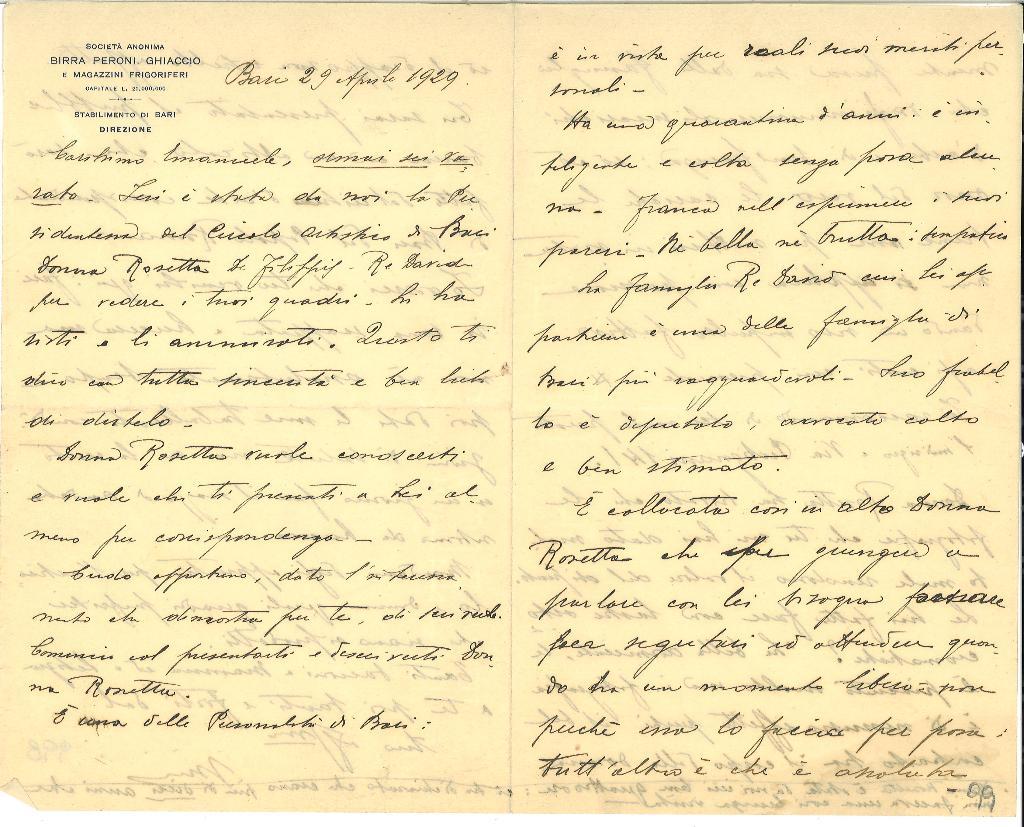 SOCIETÀ ANONIMA
BIRRA PERONI, GHIACCIO
E MAGAZZINI FRIGORIFERI
CAPITALE L. 20.000.000
STABILIMENTO DI BARI
DIREZIONE
Bari 29 Aprile 1929.
Carissimo Emanuele, ormai sei va-
rato. Ieri è stata da noi la Pre
sidentessa del Circolo Artistico di Bari
Donna Rosetta De Filippis - Re David
per vedere i tuoi quadri - Li ha
visti e li ammirati. Questo ti
dico con tutta sincerità e ben lieto
di dirtelo -
Donna Rosetta vuole conoscerti
e vuole che ti presenti a Lei al-
meno per corrispondenza -
Credo opportuno, dato l'interessa
mento che dimostra per te, di scriverle.
Comincio col presentarti e descriverti Don-
na Rosetta.
È una delle Personalità di Bari:
è in vista per reali suoi meriti per-
sonali -
Ha una quarantina d'anni: è in-
telligente e colta senza posa alcu
na - Franca nell'esprimere i suoi
pareri - Nè bella nè brutta: simpatica
La famiglia Re David cui lei ap-
partiene è una delle famiglie di
Bari più ragguardevoli - Suo fratel-
lo è deputato, avvocato colto
e ben stimato.
È collocata così in alto Donna
Rosetta che per giungere a
parlare con lei bisogna
seguitarsi ed attendere quan-
do ha un momento libero: non
perchè essa lo faccia per posa:
tutt'altro è che è assoluta
- 99